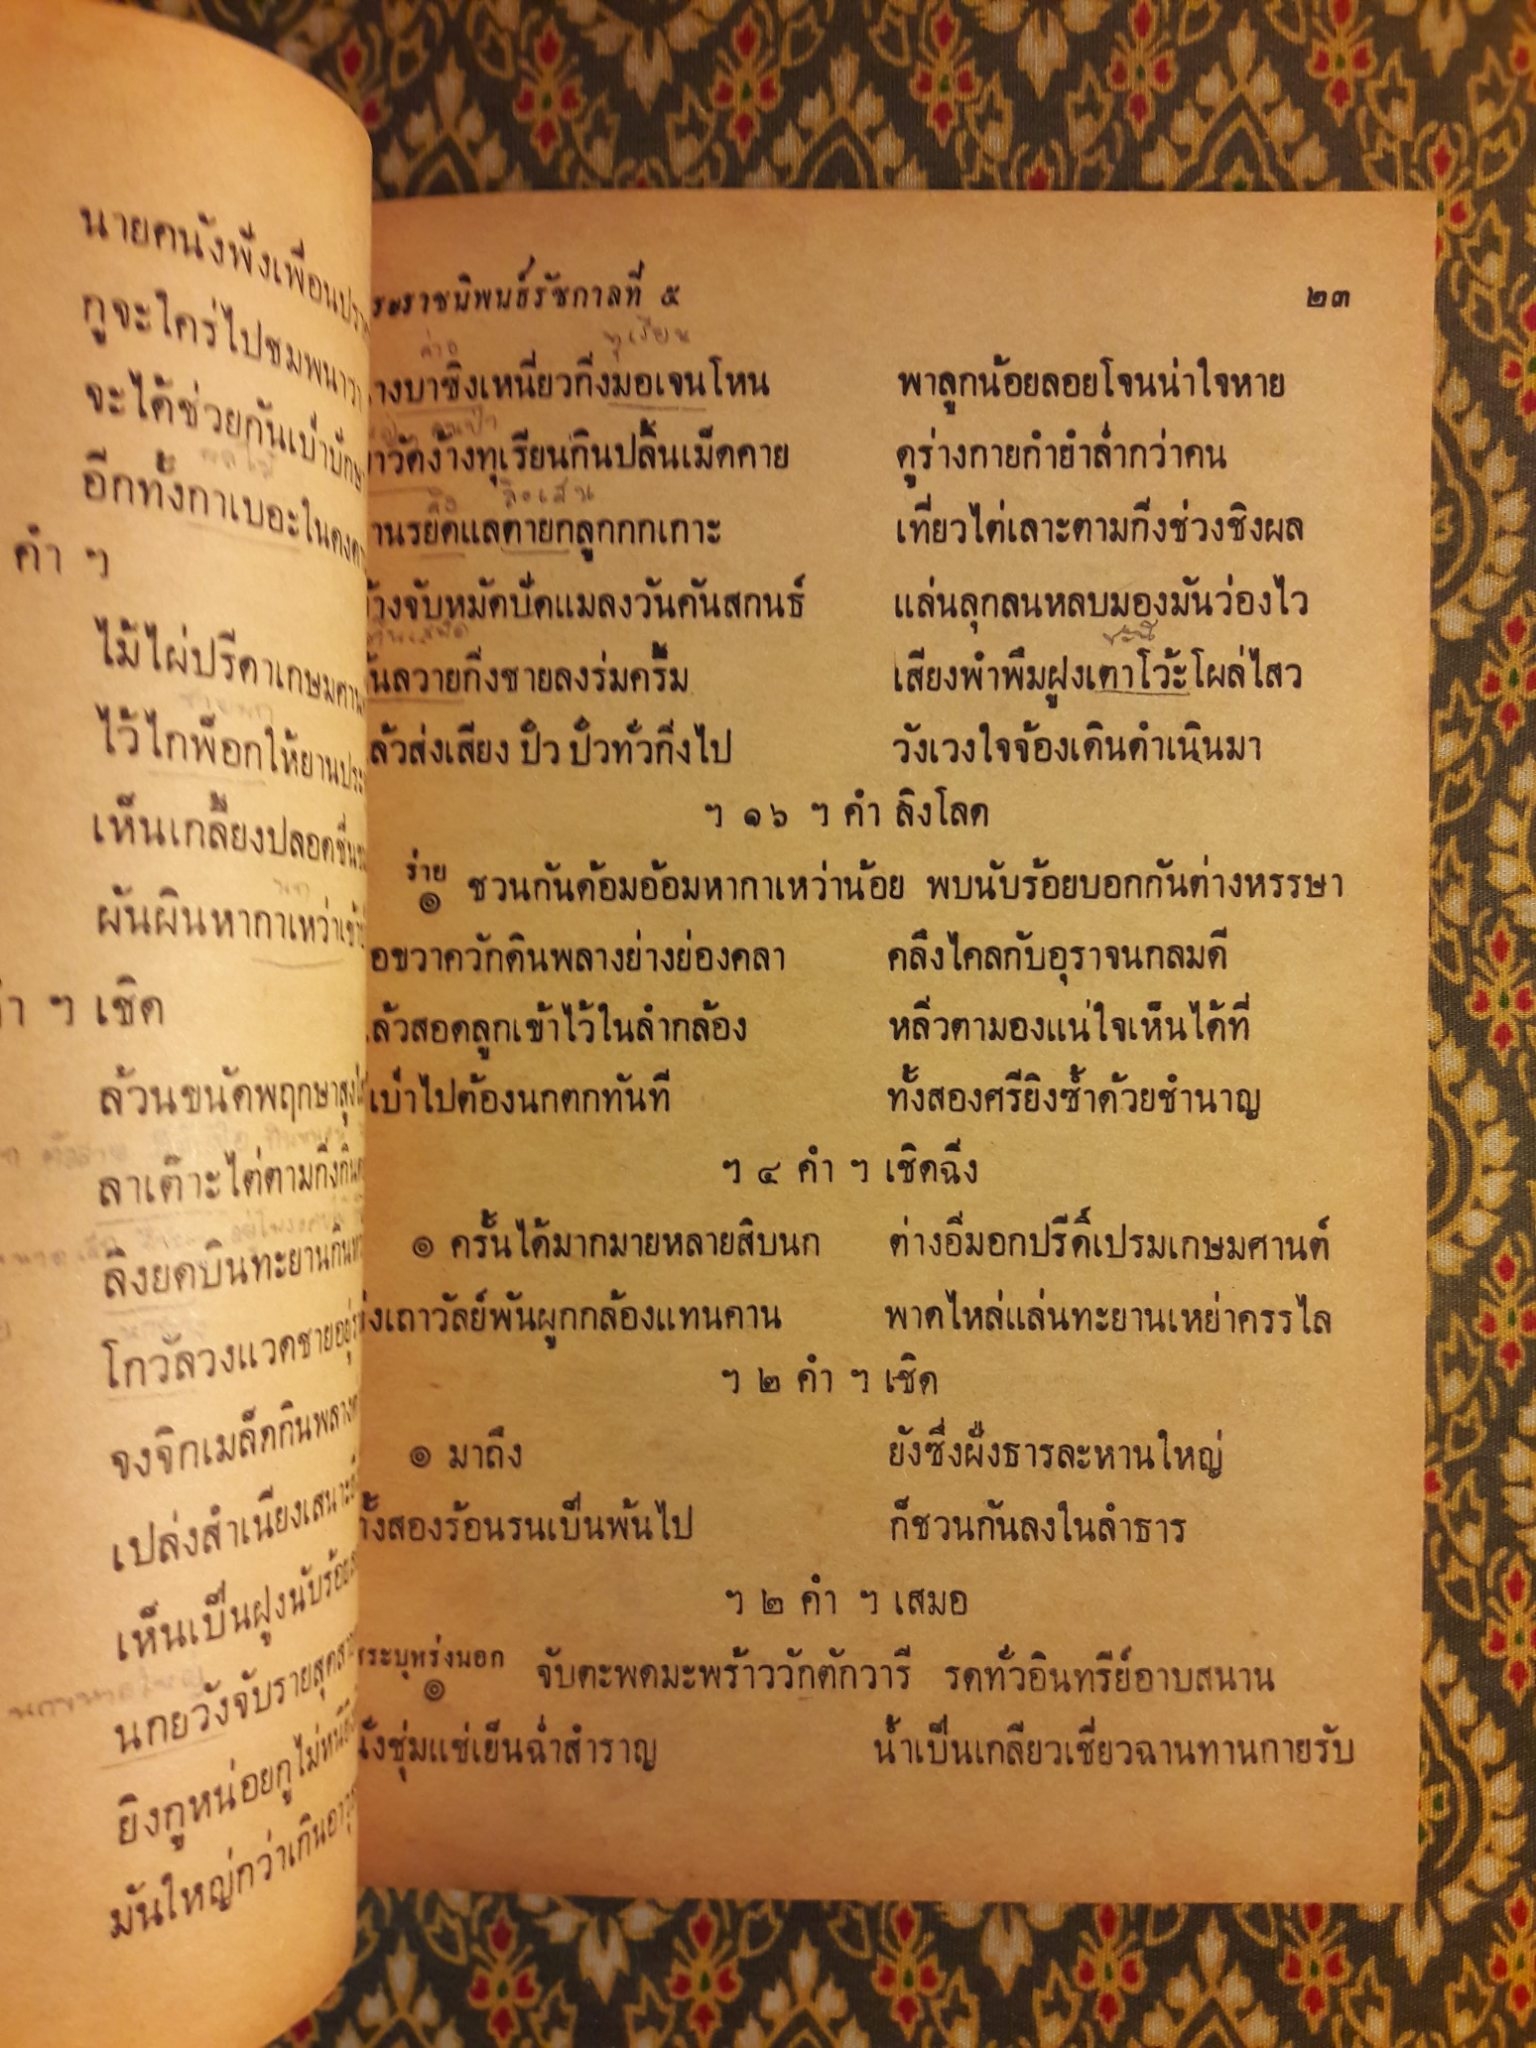 นายคนังพึ่งเพื่อน
กูจะใคร่ไปชมพนา
จะได้ช่วยกันเป่า
อีกทั้งกาเบอะในดง
คำ ฯ
ไม้ไผ่ปรีดาเกษม
ไว้ไกพ็อกให้ยาน
เห็นเกลี้ยงปลอด
ผันผินหากาเหว่า
ฯ เชิด
ล้วนขนัดพฤกษาสูง
ลาเต๊าะไต่ตามกิ่ง
ลิงยดบินทะยาน
โกวัลวงแวดชาย
จงจิกเมล็ดกินพลาง
เปล่งสำเนียงเสนาะ
เห็นเป็นฝูงนับร้อย
นกยวังจับราย
ยิงกูหน่อยกูไม่
มันใหญ่กว่าเกิน
ระราชนิพนธ์รัชกาลที่ ๕ ๒๓
ค่าง ทุเรียน
างบาซิงเหนี่ยวกิ่งมอเจนโหน พาลูกน้อยลอยโจนน่าใจหาย
าวัดง้างทุเรียนกินปลิ้นเม็ดคาย ดูร่างกายกำยำล่ำกว่าคน
ลิง ลิงเสน
านรยิดแลดายกลูกกกเกาะ เที่ยวไต่เลาะตามกิ่งช่วงชิงผล
้างจับหมัดปัดแมลงวันคันสกนธ์ แล่นลุกลนหลบมองมันว่องไว
ชะนี
ันลวายกิ่งชายลงร่มครึ้ม เสียงพำพึมฝูงเตาโว้ะโผล่ไสว
ล้วส่งเสียง ปิ๋ว ปิ๋วทั่วกิ่งไป วังเวงใจจ้องเดินดำเนินมา
ฯ ๑๖ ฯ คำ ลิงโลด
ร่าย
๏ ชวนกันด้อมอ้อมหากาเหว่าน้อย พบนับร้อยบอกกันต่างหรรษา
อขวาควักดินพลางย่างย่องคลา คลึงไคลกับอุราจนกลมดี
ล้วสอดลูกเข้าไว้ในลำกล้อง หลิ่วตามองแน่ใจเห็นได้ที่
เป่าไปต้องนกตกทันที ทั้งสองศรียิงซ้ำด้วยชำนาญ
ฯ ๔ คำ ฯ เชิดฉิ่ง
๏ ครั้นได้มากมายหลายสิบนก ต่างอิ่มอกปรีดิ์เปรมเกษมศานต์
่งเถาวัลย์พันผูกกล้องแทนคาน พาดไหล่แล่นทะยานเหย่าครรไล
ฯ ๒ คำ ฯ เชิด
๏ มาถึง ยังซึ่งฝั่งธารละหานใหญ่
ั้งสองร้อนรนเป็นพ้นไป ก็ชวนกันลงในลำธาร
ฯ ๒ คำ ฯ เสมอ
สระบุหร่งนอก
๏ จับตะพดมะพร้าววักตักวารี รดทั่วอินทรีย์อาบสนาน
ั่งชุ่มแช่เย็นฉ่ำสำราญ น้ำเป็นเกลียวเชี่ยวฉานทานกายรับ